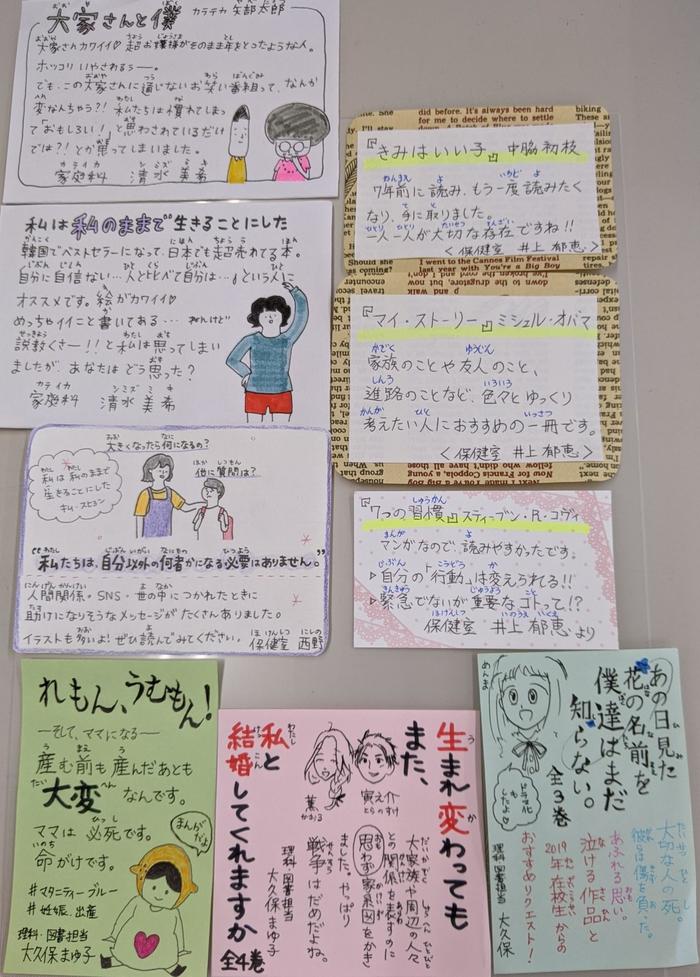 大家さんと僕 カラテカ 矢部太郎
大家さんカワイイ♡ 超お嬢様がそのまま年をとったような人。
ホッコリ いやされるぅー。
でも、この大家さんに通じないお笑い番組って、なんか
変なんちゃう?! 私たちは慣れてしまっ
て「おもしろい!」と思わされているだけ
では?!とか思ってしまいました。
家庭科 清水 美希
カテイカ シミズ ミキ
私は私のままで生きることにした
韓国でベストセラーになって、日本でも超売れてる本。
自分に自信ない…人と比べて自分は…という人に
オススメです。絵がカワイイ♡
めっちゃイイこと書いてある… けれど
説教くさー!!と私は思ってしまい
ましたが、あなたはどう思った?
カテイカ シミズ ミキ
家庭科 清水 美希
大きくなったら何になるの?
他に質問は?
私は私のままで
生きることにした
キム・スヒョン
“私たちは、自分以外の何者かになる必要はありません。”
人間関係・SNS・世の中につかれたときに
助けになりそうなメッセージがたくさんありました。
イラストも多いよ!ぜひ読んでみてください。 保健室 西野
『きみはいい子』 中脇初枝
7年前に読み、もう一度読みたく
なり、手に取りました。
一人一人が大切な存在ですね!!
<保健室 井上郁恵>
『マイ・ストーリー』 ミシェル・オバマ
家族のことや友人のこと、
進路のことなど、色々とゆっくり
考えたい人におすすめの一冊です。
<保健室 井上郁恵>
『7つの習慣』 スティーブン・R・コヴィ
マンガなので、読みやすかったです。
▷自分の「行動」は変えられる!!
▷緊急でないが重要なコトって!?
保健室 井上郁恵より
れもん、うむもん!
―そして、ママになる―
産む前も産んだあとも
大変なんです。
ママは必死です。
命がけです。
まんがだよ
#マタニティーブルー
#妊娠、出産
理科・図書担当
大久保まゆ子
生まれ変わっても
また、
私と
結婚してくれますか
全4巻
寅之介
とらのすけ
薫
かおる
大家族や周辺の人々
との関係を表すのに
思わず家系図をかき
ました。やっぱり
戦争はだめだよね。
理科 図書担当
大久保まゆ子
あの日見た
花の名前を
僕達はまだ
知らない。
全3巻
めんま
ドラマ化
もしたよ♡
大切な人の死。
彼らは傷を負った。
あふれる思い。
泣ける作品と
2019年在校生からの
おすすめリクエスト!
理科 図書担当 大久保
did before. It's always been hard
for me to decide where to settle
I went to the Cannes Film Festival
last year with You're a Big Boy